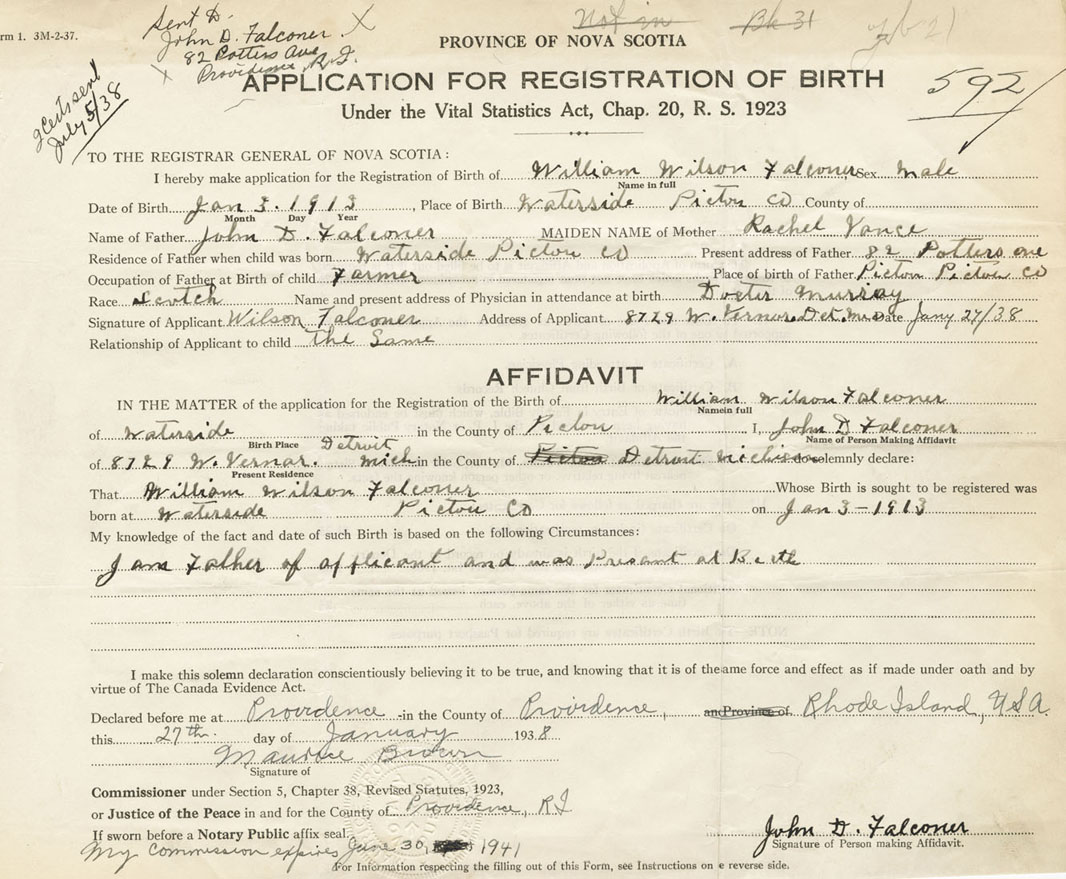 Form 1. 3M-2-37.
Sent to
John D. Falconer
82 Potters Ave
Providence, R.I.
2 certs sent
July 5/38
Not in Bk 31
592
PROVINCE OF NOVA SCOTIA
APPLICATION FOR REGISTRATION OF BIRTH
Under the Vital Statistics Act, Chap. 20, R. S. 1923
TO THE REGISTRAR GENERAL OF NOVA SCOTIA:
I hereby make application for the Registration of Birth of William Wilson Falconer Sex Male
Name in full
Date of Birth Jan 3. 1913, Place of Birth Waterside Pictou Co County of
Month Day Year
Name of Father John D. Falconer MAIDEN NAME of Mother Rachel Vance
Residence of Father when child was born Waterside Pictou Co Present address of Father 82 Potters ave
Occupation of Father at Birth of child Farmer Place of birth of Father Pictou Pictou Co
Race Scotch Name and present address of Physician in attendance at birth Docter Murray
Signature of Applicant Wilson Falconer Address of Applicant 8729 W. Vernor. Det. Date Jany 27/38
Relationship of Applicant to child The Same
AFFIDAVIT
IN THE MATTER of the application for the Registration of the Birth of William Wilson Falconer
Name in full
of Waterside in the County of Pictou I, John D Falconer
Birth Place Name of Person Making Affidavit
Detroit
of 8729 W. Vernar. Mich in the County of Pictou Detroit solemnly declare:
Present Residence
That William Wilson Falconer Whose Birth is sought to be registered was
born at Waterside Pictou Co on Jan 3-1913
My knowledge of the fact and date of such Birth is based on the following Circumstances:
I am Father of applicant and was Present at Birth
I make this solemn declaration conscientiously believing it to be true, and knowing that it is of the same force and effect as if made under oath and by
virtue of The Canada Evidence Act.
Declared before me at Providence in the County of Providence, and Province of Rhode Island, USA.
this 27th. day of January 1938
Maurice Brown
Signature of
Commissioner under Section 5, Chapter 38, Revised Statutes, 1923,
or Justice of the Peace in and for the County of Providence, RI
If sworn before a Notary Public affix seal.
My commission expires June 30, 1941
John D. Falconer
Signature of Person making Affidavit.
For Information respecting the filling out of this Form, see Instructions on reverse side.